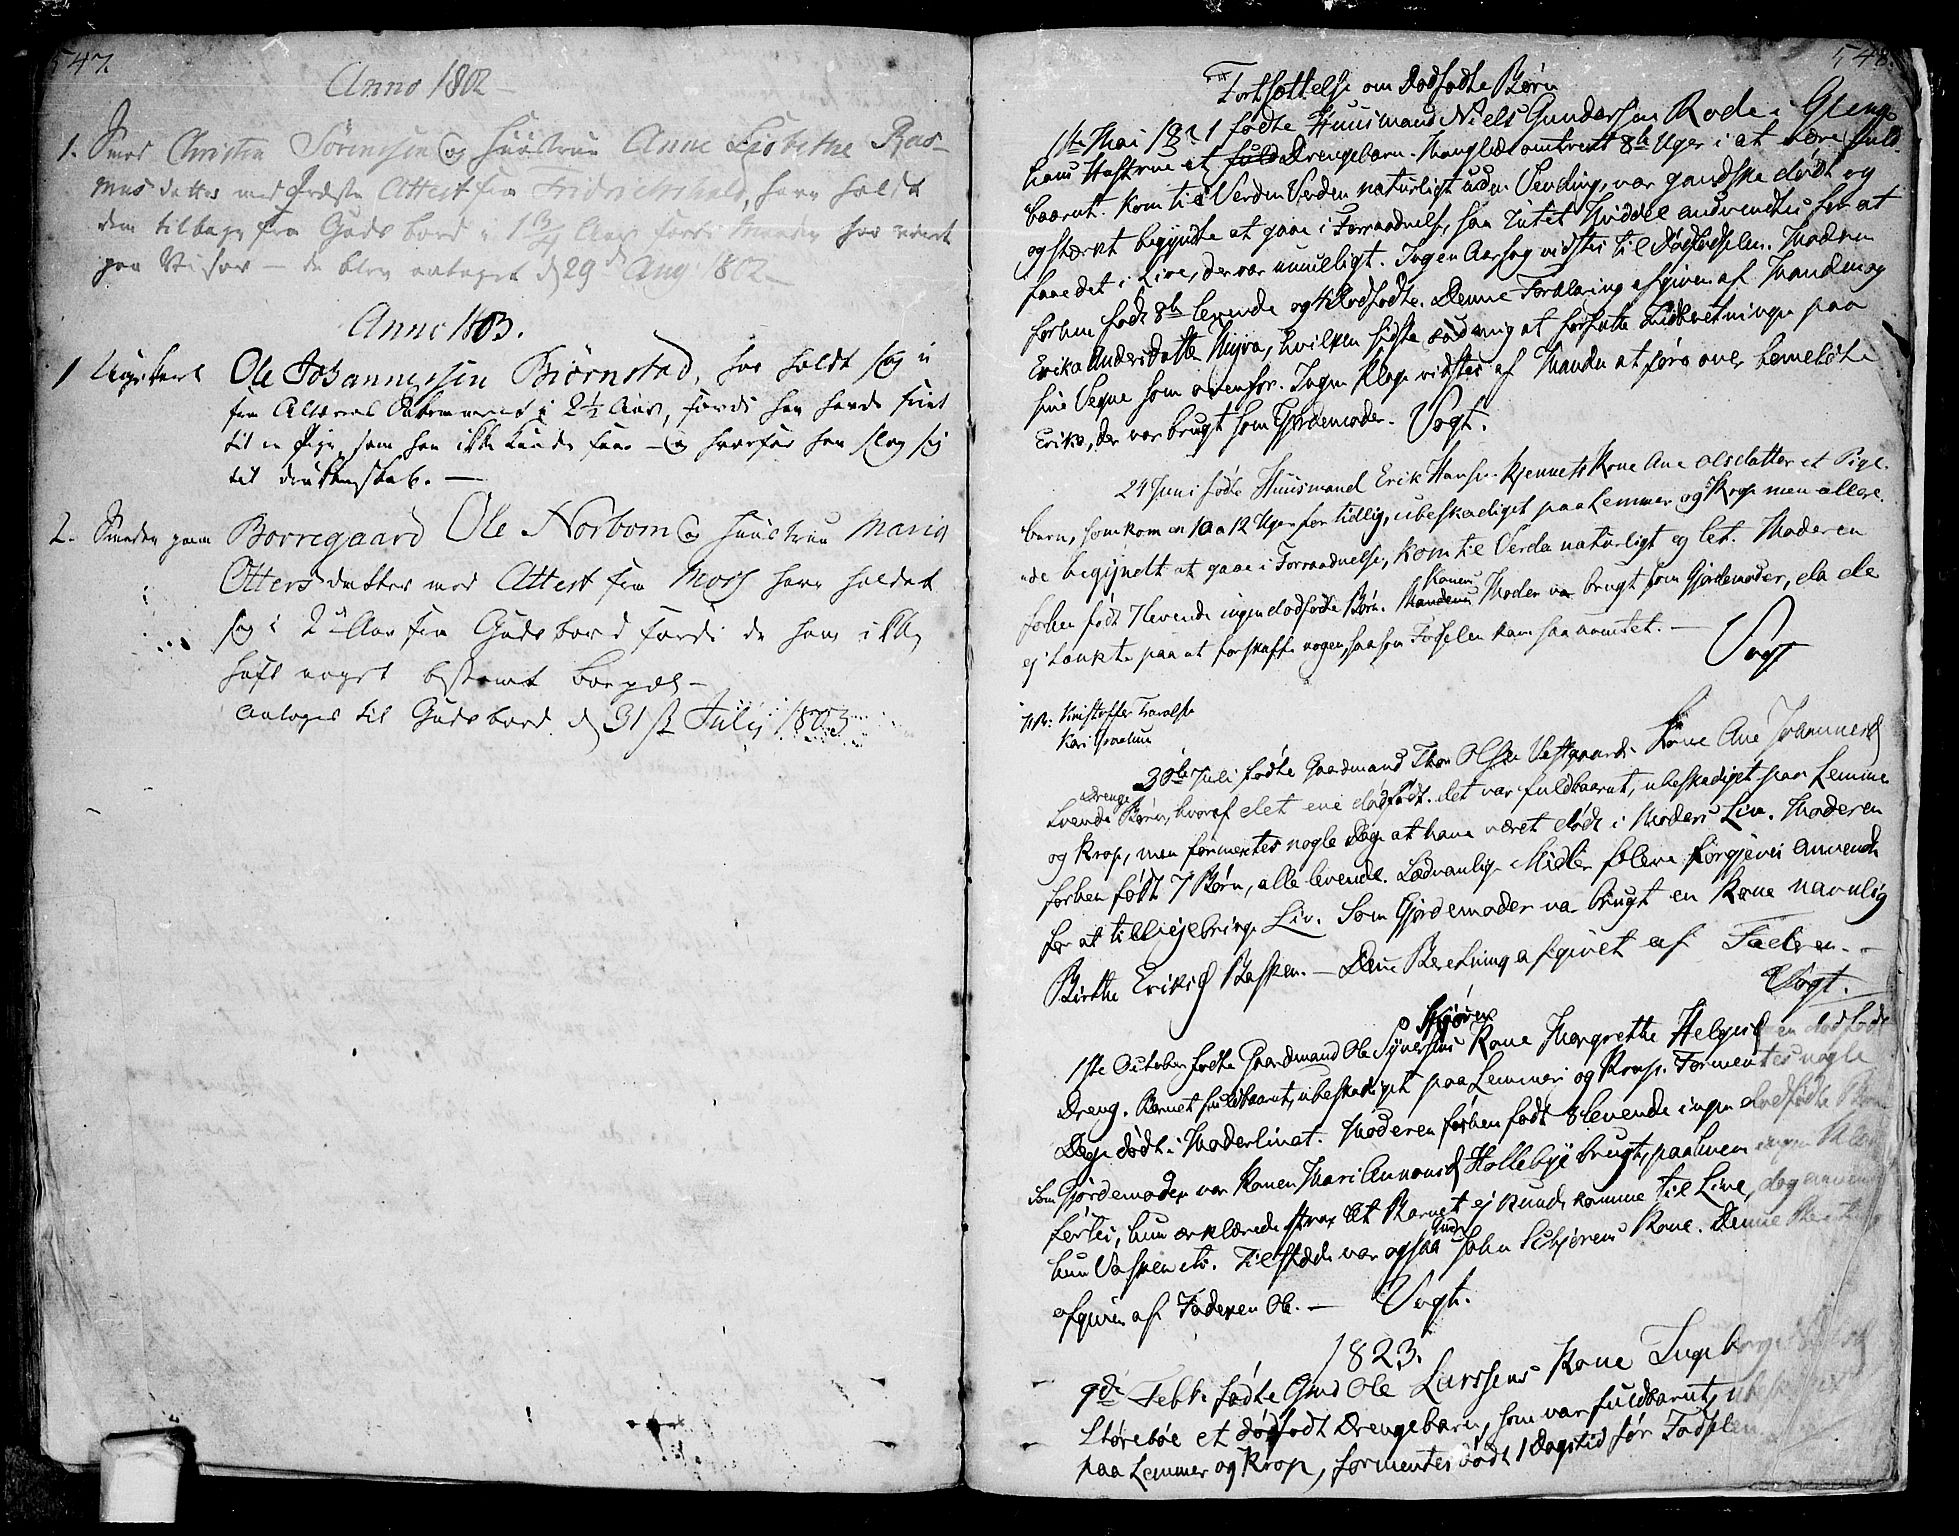 547.
Anno 1802
1. Smed Christen Sörenssen og Huustrue Anne Lisbethe Ras-
mus datter med Præste Attest fra Fridrichshald, have holdt
dem tilbage fra Guds bord i 1 3/4 Aar fordi Manden har været
paa Reiser — de blev antaget d 29de Aug 1802
Anno 1803.
1 Ungkarl Ole Johannessen Biørnstad, har holdt sig
fra Alterens Sacramente i 2½ Aar, fordi han havde friet
til en Pige, som han ikke kunde faae — og hvorfor han slog sig
til drukkenskab. —
2. Smeden paa Borregaard Ole Norbom og Huustrue Maria
Ottersdatter med Attest fra Moss have holdet
sig i 2 Aar fra Guds bord fordi de have ikke
haft noget bestemt boepæl —
antoges til Guds bord d 31st Julij 1803
548.
Fortsættelse om dødfødte Børn
1ste Mai 1821 fødte Huusmand Niels Gundersen Rode i Gleng
hans Hustrue et fuld Drengebarn. Manglede omtrent 8te Uger i at være fuld
baarent. Kom til Verden Verden naturligt uden Vending, var gandske dødt og
og stærkt begyndte at gaae i Forraadnelse, saa intet Middel anvendtes for at
faae det i Live, der var umueligt. Ingen Aarsag vidstes til Dødfødselen. Moderen
forhen født 8te levende og dødfødte. Denne Forklaring afgiven af Manden og
Erika Andersdatter Myra, hvilken sidste bad mig at forfatte Indberetningen paa
sine Vegne som ovenfor. Ingen Klage vidstes af Manden at føre over bemeldte
Erika, der var brugt som Gjordemoder. Vogt.
24 Juni fødte Huusmand Erik Hansen Kjennets Kone Ane Olsdatter et Pige-
barn, som kom en 10 a 12 Uger for tidlig, ubeskadiget paa Lemmer og Krop men allere-
ede begyndt at gaae i Forraadnelse, kom til Verden naturligt og let. Moderen
forhen født 7 levende ingen dødfødte Børn. Mandens Konens Moder var brugt som Gjordemoder, da de
ej tænkte paa at forskaffe nogen, saasom Fødselen kom saa uventet. —
Vogt
NB: Kristoffer
Kari
30te Juli fødte Gaardmand Thor Olsen Vestgaards Kone Ane Johannesd
tvende Drenge Børn, hvoraf det ene dødfødt. det var fuldbaarent, ubeskadiget paa Lemmer
og Krop, men formentes nogle Dage at have været dødt i Moders Liv. Moderen
forhen født 7 Børn, alle levende. Sædvanlige Midler bleve forgjeves anvendt
for at tilvejebringe Liv. Som Gjordemoder var brugt en Kone navnlig
Birthe Eriksd Basken. — Denne Beretning afgivet af Faderen. —
Vogt.
1ste October fødte Gaardmand Ole Syversens Skjøren Kone Margrethe Helgesd en dødfødt
Dreng. Barnet fuldbaarent, ubeskadiget paa Lemmer og Krop. Formentes nogle
Dage dødt i Moderlivet. Moderen forhen født 8 levende ingen dødfødte Børn
Som Gjordemoder var Konen Mari Annonsd Hollebye brugt, paa hvem ingen Klage
førtes, hun erklærede strax at Barnet ej kunde komme til Live, dog anvendte
hun Vasken etc. Tilstæde var ogsaa John Schjørens Kone. Denne Beretning
afgiven af Faderen Ole. — Vogt.
1823.
9de Febr. fødte Gmd Ole Larssens Kone Ingeborg
Størebøe et dødfødt Drengebarn, som var fuldbaarent, ubeskadiget
paa Lemmer og Krop, formentes dødt 1 Dagstid før Fødselen